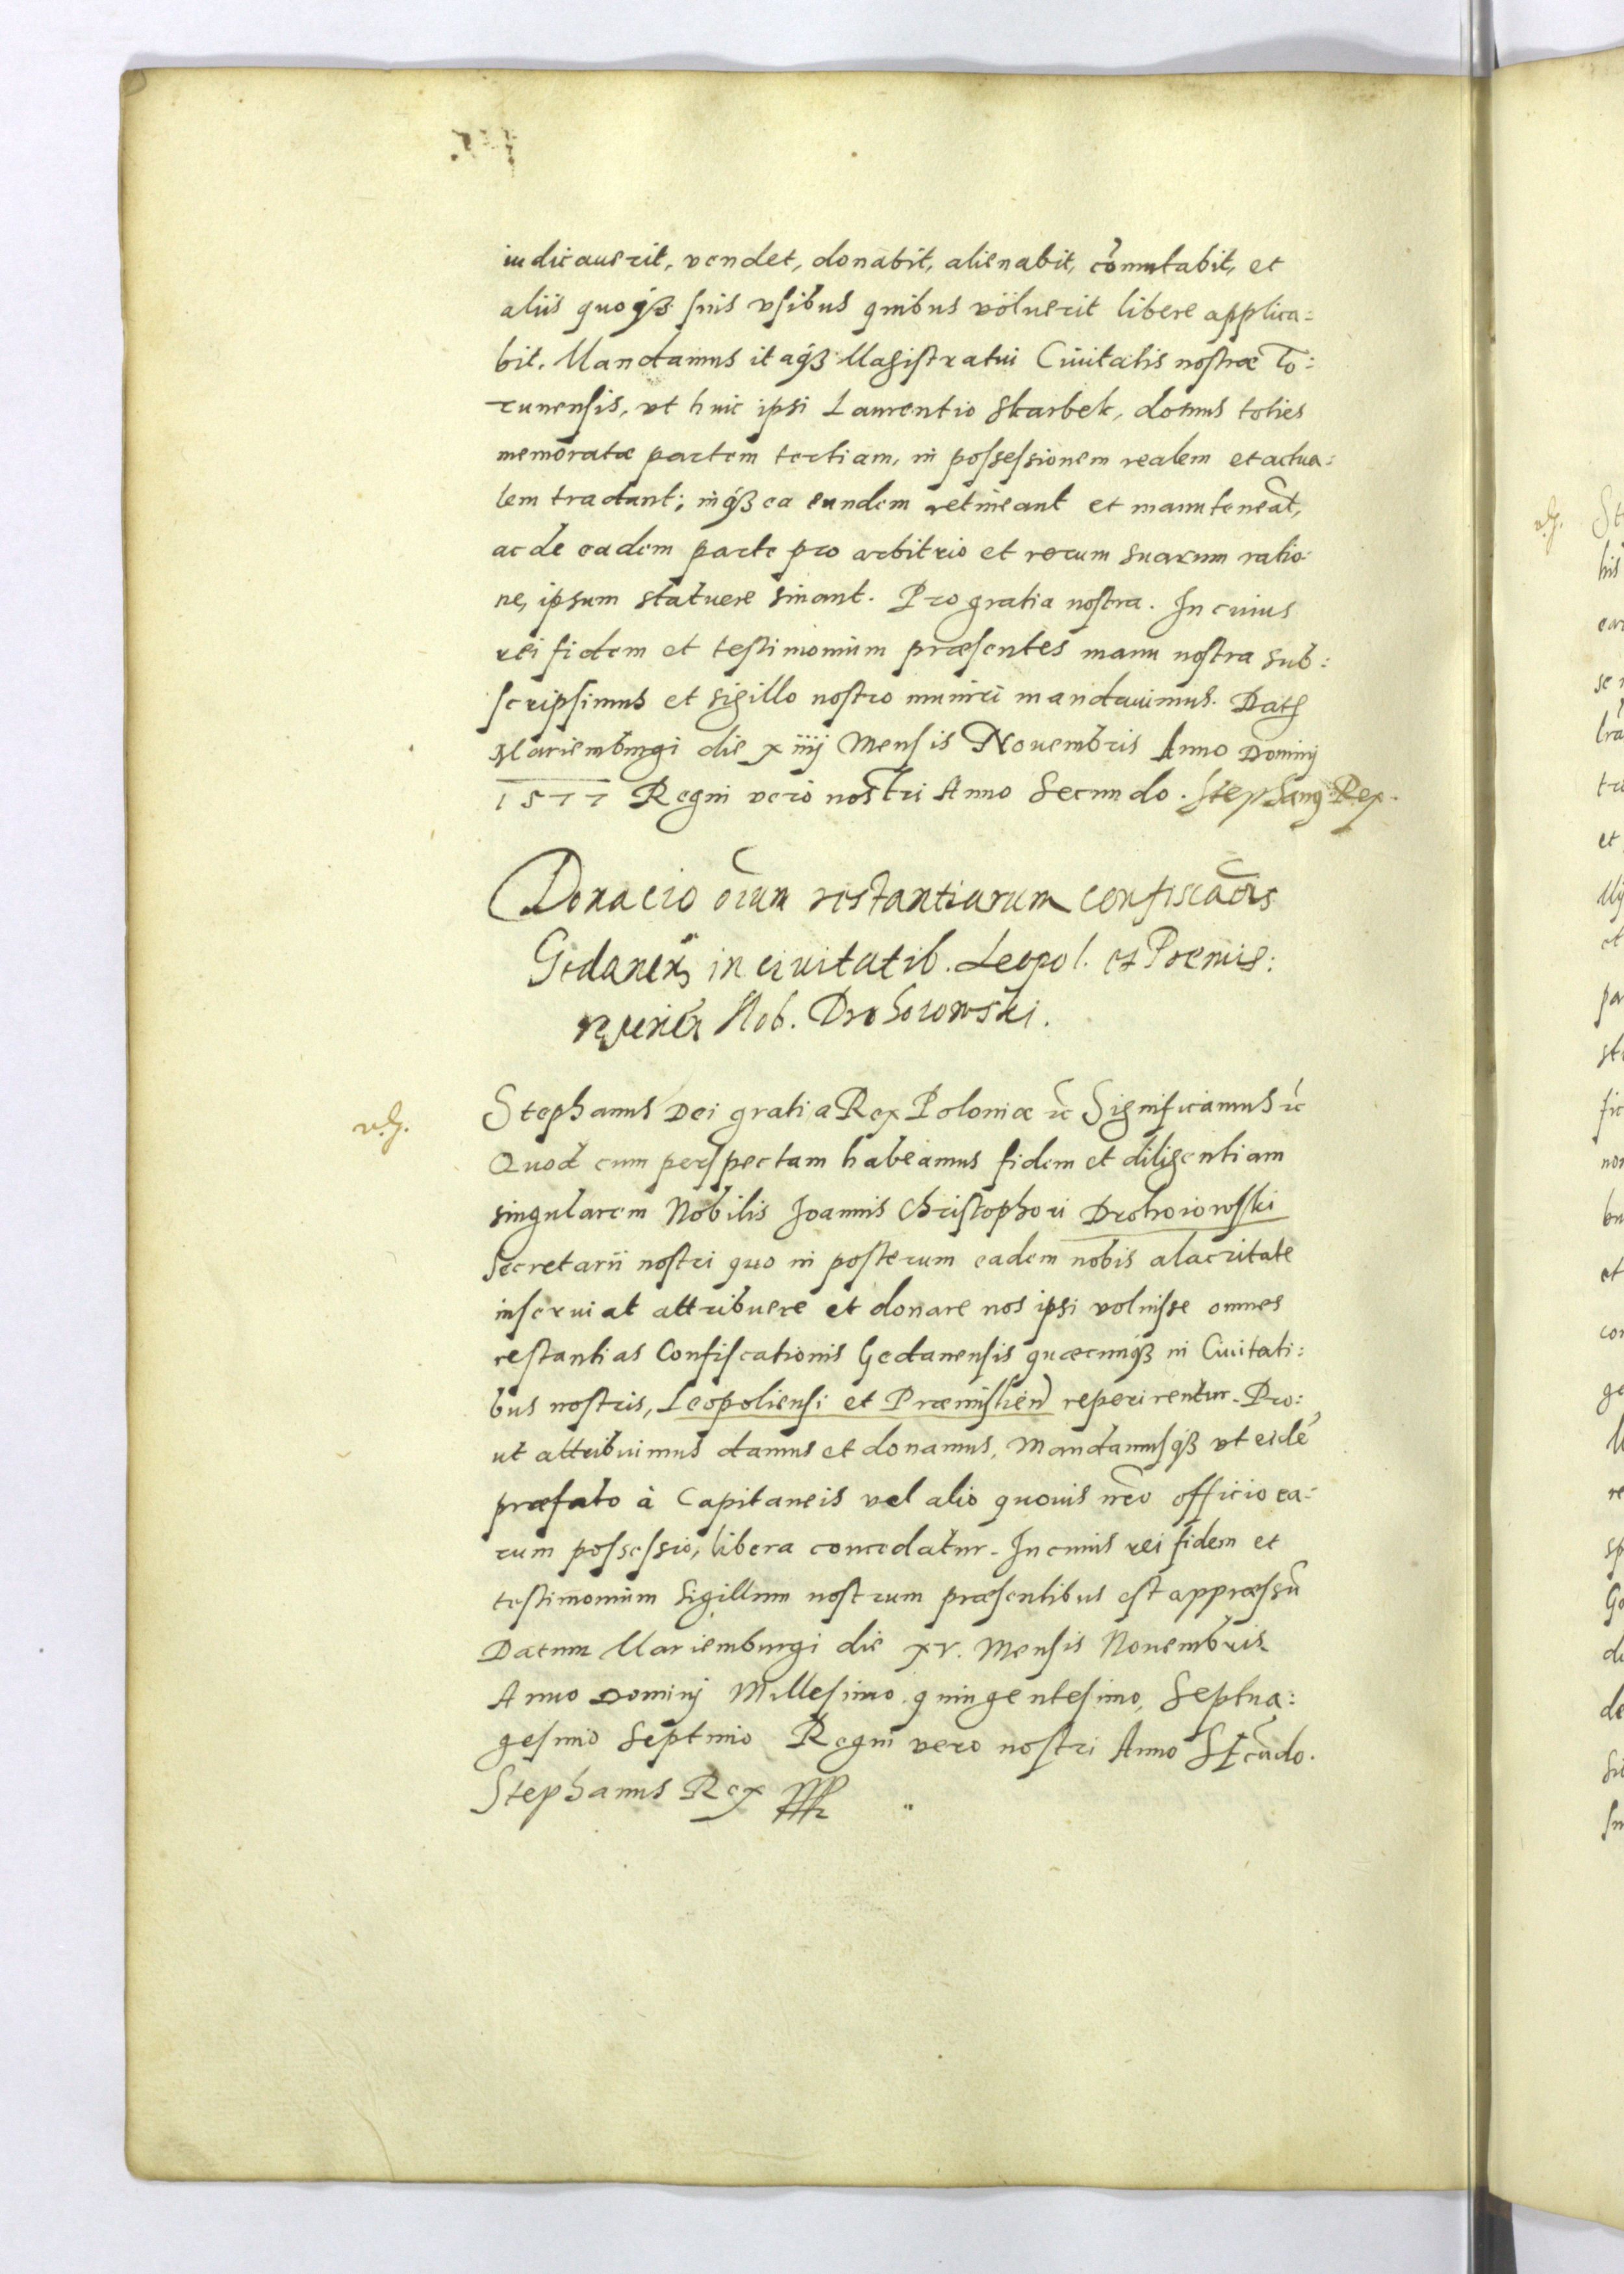 iudicauerit, vendet, donabit, alienabit, cõmutabit, et
aliis quoqз suis vsibus quibus voluerit libere applica:
bit. Mandamus itaqз Magistratui Ciuitatis nostræ To:
runensis, vt huic ipsi Laurentio Skarbek, domus toties
memoratæ partem tertiam, in possessionem realem et actua:
lem tradant; inqз ea eundem retineant et manuteneãt,
ac de eadem parte pro arbitrio et rerum suarum ratio:
ne, ipsum statuere sinant. Pro gratia nostra. In cuius
rei fidem et testimonium præsentes manu nostra sub:
scripsimus et sigillo nostro muniri mandauimus. Datҙ
Mariemburgi die x iiij Mensis Nouembris Anno Dominj
1577 Regni vero nostri Anno Secundo. Stephanꝰ Rex.
Donacio oĩum restantiarum confiscaõis
Gedanen̄ in ciuitatib. Leopol. et Premis:
Nob. Drohoiowski.
v.g. Stephanus Dei gratia Rex Poloniæ ꝛc̃ Significamus ꝛc̃
Quod cum perspectam habeamus fidem et diligentiam
singularem Nobilis Joannis Christophori Drohoiowski
Secretarii nostri quo in posterum eadem nobis alacritate
inseruiat attribuere et donare nos ipsi voluisse omnes
restantias Confiscationis Gedanensis quæcunqз in Ciuitati:
bus nostris, Leopoliensi et Præmislien̄ reperirentur. Pro:
ut attribuimus damus et donamus, Mandamusqз vt eidẽ
præfato à Capitaneis vel alio quouis nr̃o officio ea:
rum possessio, libera concedatur. In cuius rei fidem et
testimonium Sigillum nostrum præsentibus est appræssũ
Datum Mariemburgi die xv. Mensis Nouembris
Anno Dominj Millesimo quingentesimo, Septua:
gesimo Septimo Regni vero nostri Anno Secũdo.
Stephanus Rex